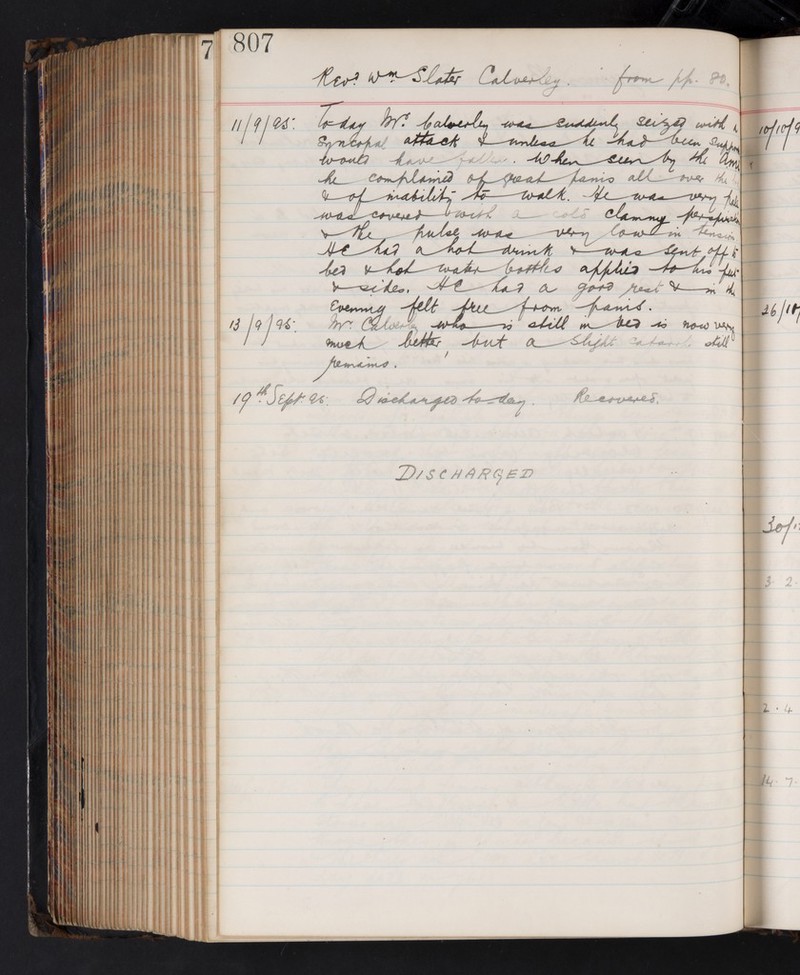 7 807
Revd. Wm Slater Calverley. from pp. 80.
11/9/95. To-day Mr. Calverley was suddenly seized with a
Syncopal attack & unless he had been
would have fallen. When seen by the
he complained of great pains all over the
& of inability to walk. He was very pale
was covered with a cold clammy
& the pulse was very low in tension
He had a hot drink & was sent off to
bed & hot water bottles applied to his feet
& sides. He had a good rest & in the
Evening felt free from pains.
13/9/95. Mr. Calverley who is still in bed is now very
much better, but a slight catarrh still
remains.
19th Sept. 95. Discharged to-day. Recovered.
DISCHARGED
10/10/9
26/10/
30/1
3. 2.
2. 4
14. 7.